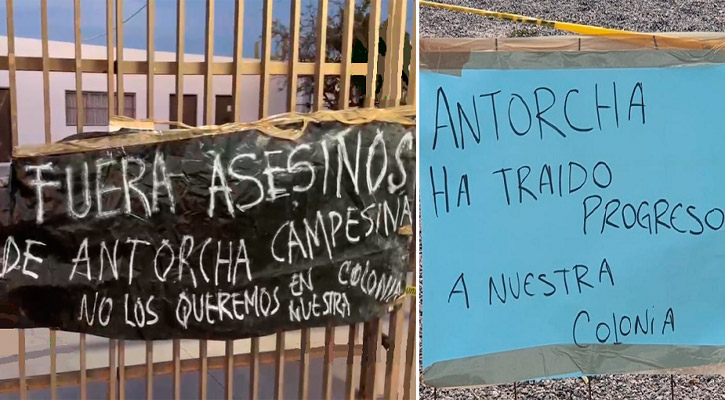 FUERA ASESINOS
DE ANTORCHA CAMPESINA
NO LOS QUEREMOS EN NUESTRA COLONIA
ANTORCHA
HA TRAIDO
PROGRESO
A NUESTRA
COLONIA